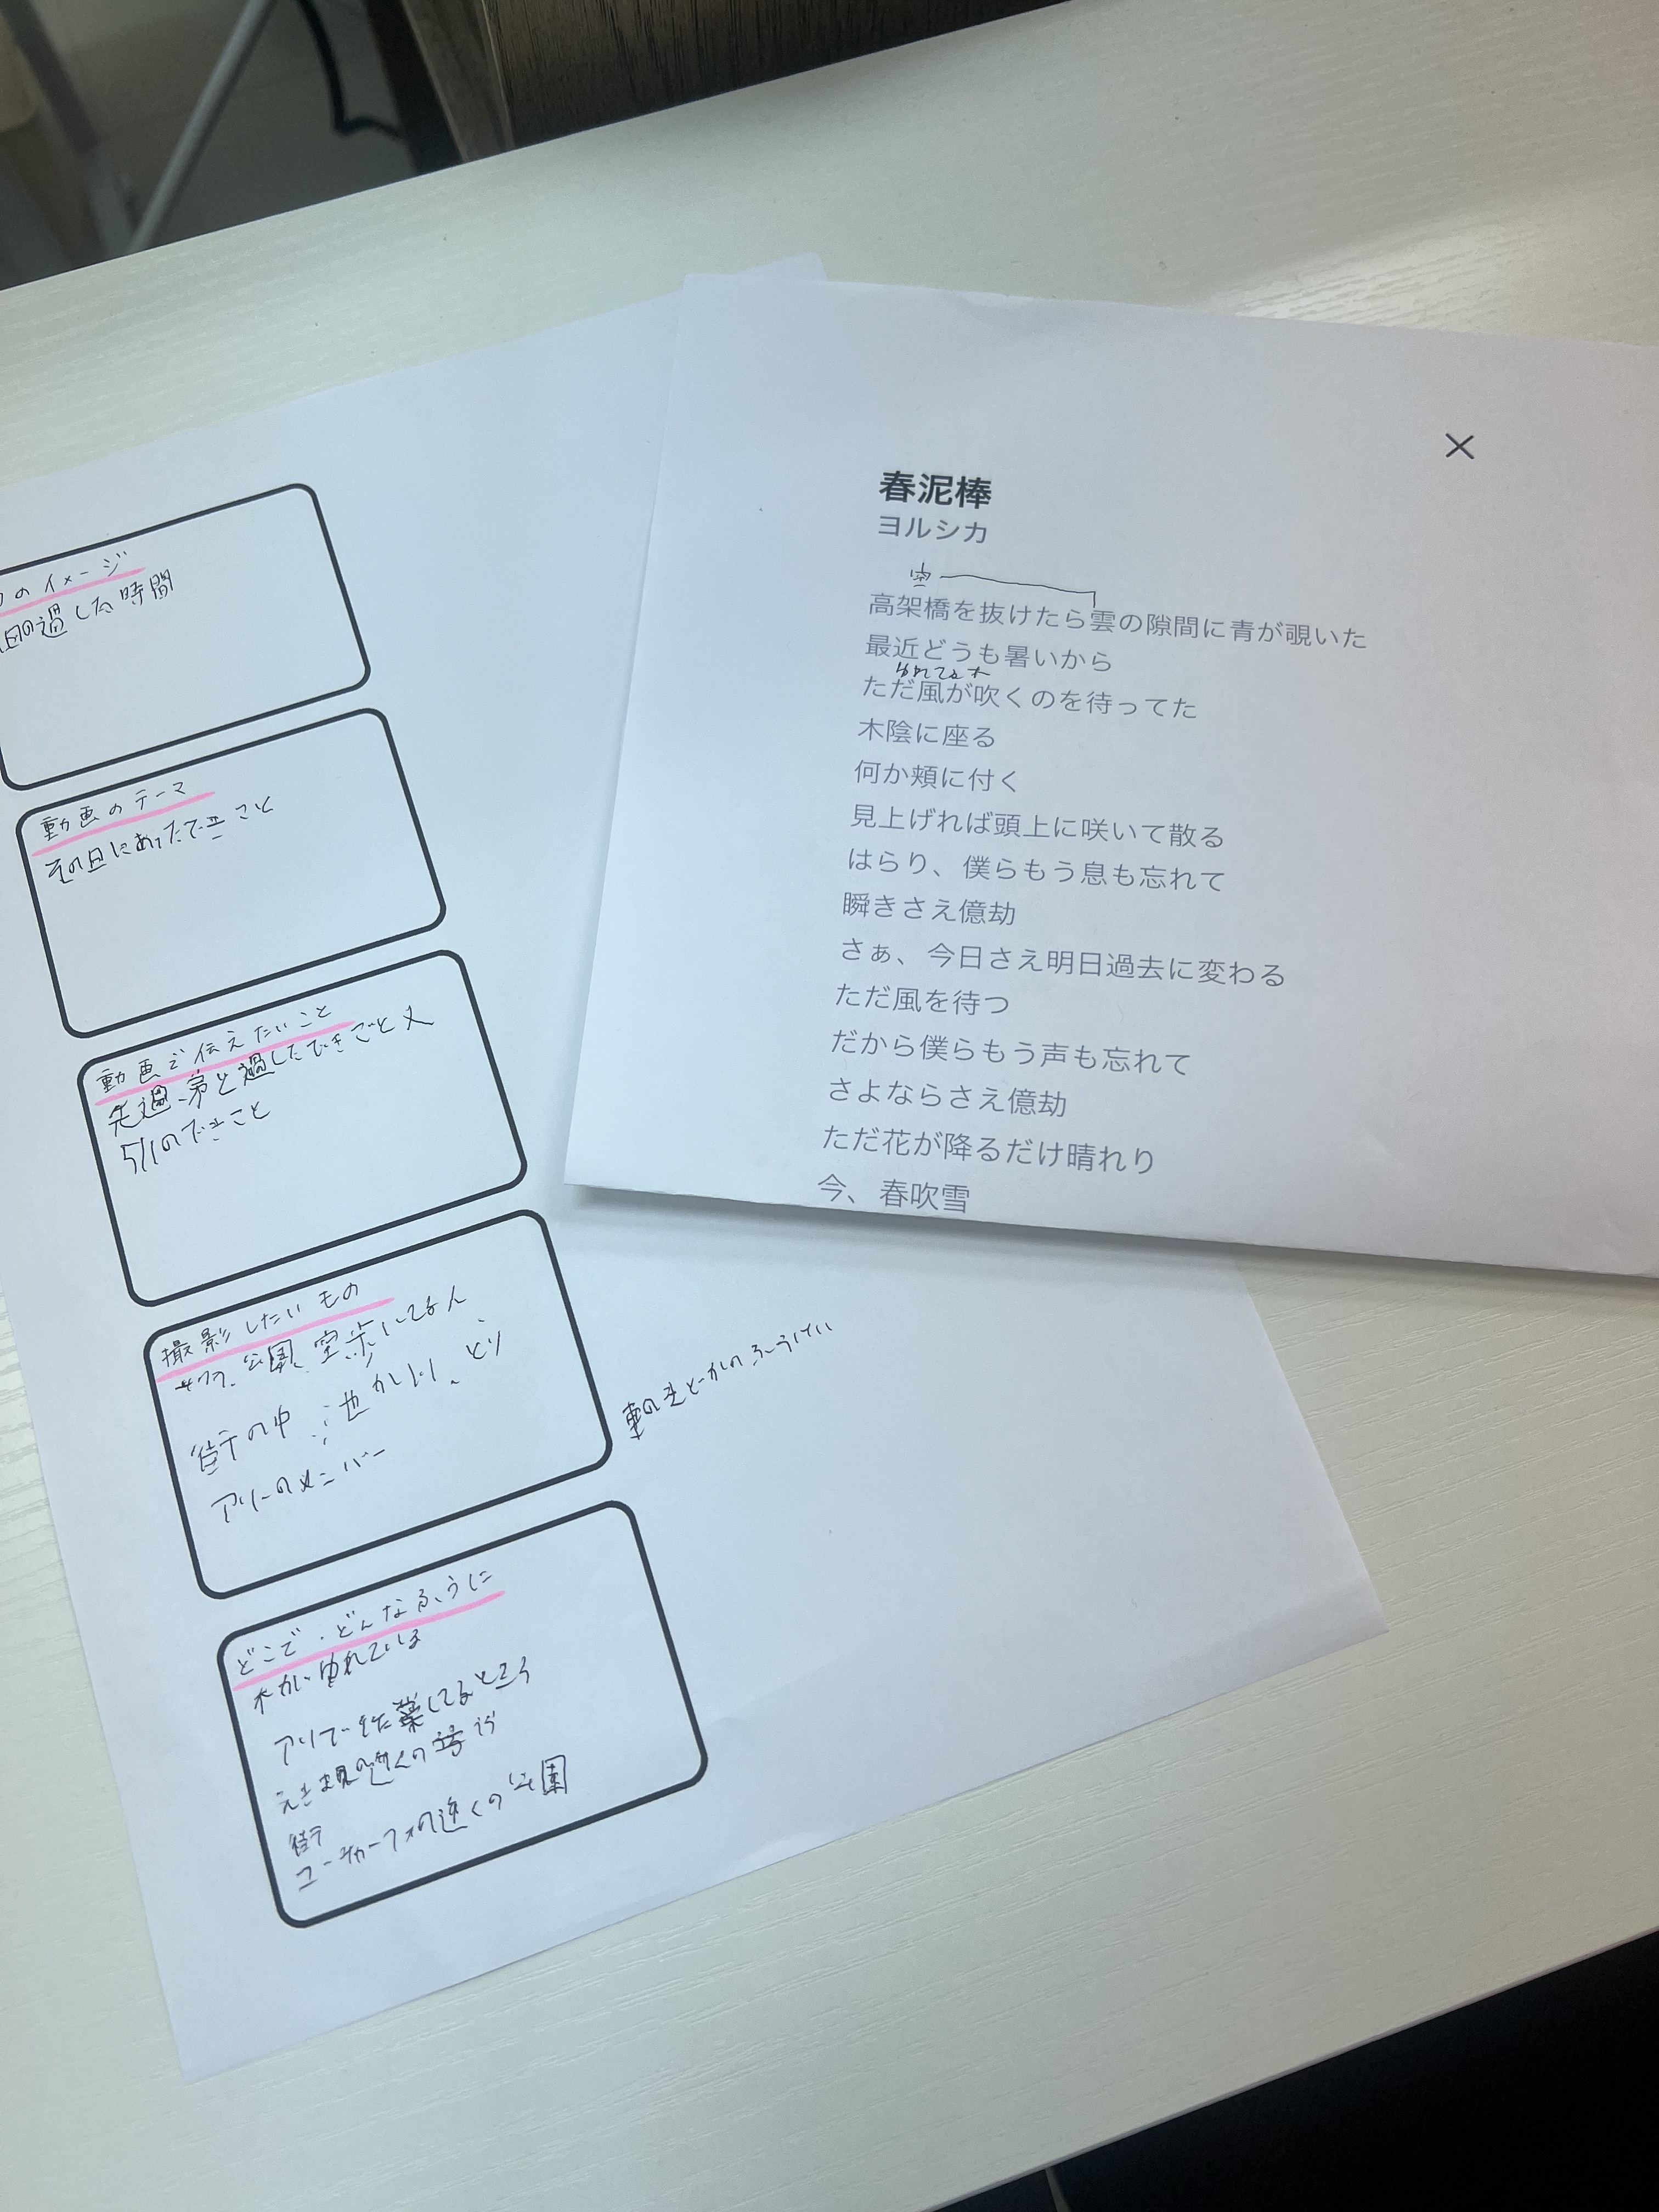 のイメージ
過した時間
動画のテーマ
その日にあったできこと
動画で伝えたいこと
先週、弟と過したできごと又
5/1のできこと
撮影したいもの
公園、空
街の中
アリーのメンバー
車の
ふうけい
どこで・どんなふうに
木がゆれている
してるところ
近くの
街
近くの公園
×
春泥棒
ヨルシカ
空
高架橋を抜けたら雲の隙間に青が覗いた
最近どうも暑いから
ゆれてる木
ただ風が吹くのを待ってた
木陰に座る
何か頬に付く
見上げれば頭上に咲いて散る
はらり、僕らもう息も忘れて
瞬きさえ億劫
さぁ、今日さえ明日過去に変わる
ただ風を待つ
だから僕らもう声も忘れて
さよならさえ億劫
ただ花が降るだけ晴れり
今、春吹雪